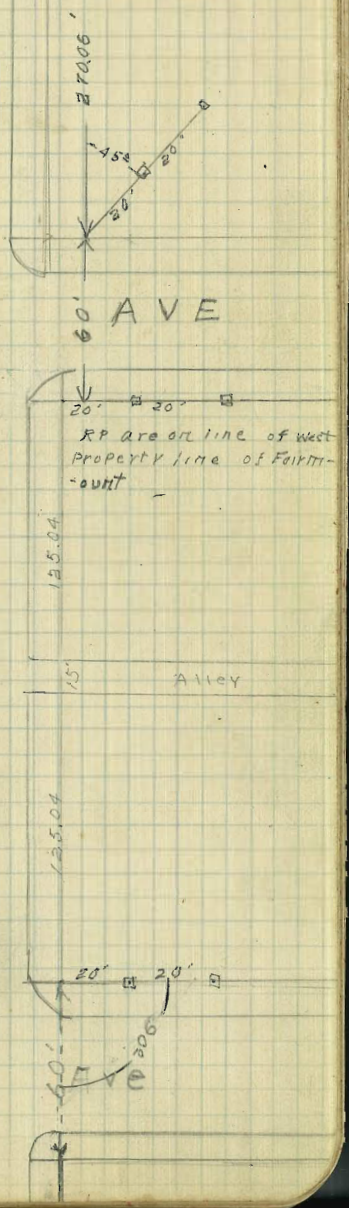 270.05'
45°
20'
20'
60'
AVE
20' 20'
RP are on line of west
Property line of Fairm-
-ount
125.04
15'
Alley
125.04
20' 20'
90°
60' Ave